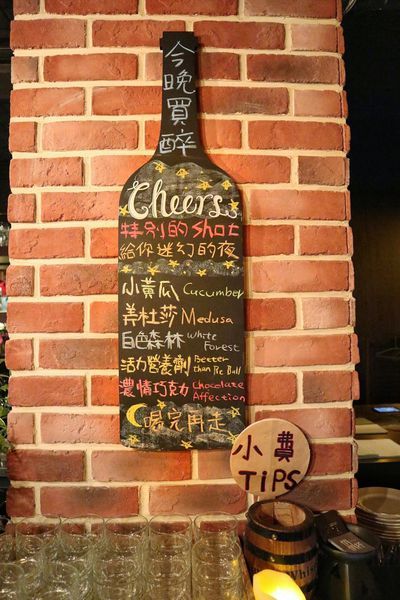 今晚買醉
Cheers
特別的shot
給你迷幻的夜
小黃瓜 Cucumber
美杜莎 Medusa
白色森林 White Forest
活力營養劑 Better than Re Bull
濃情巧克力 Chocolate Affection
喝完再走
小費
TIPS